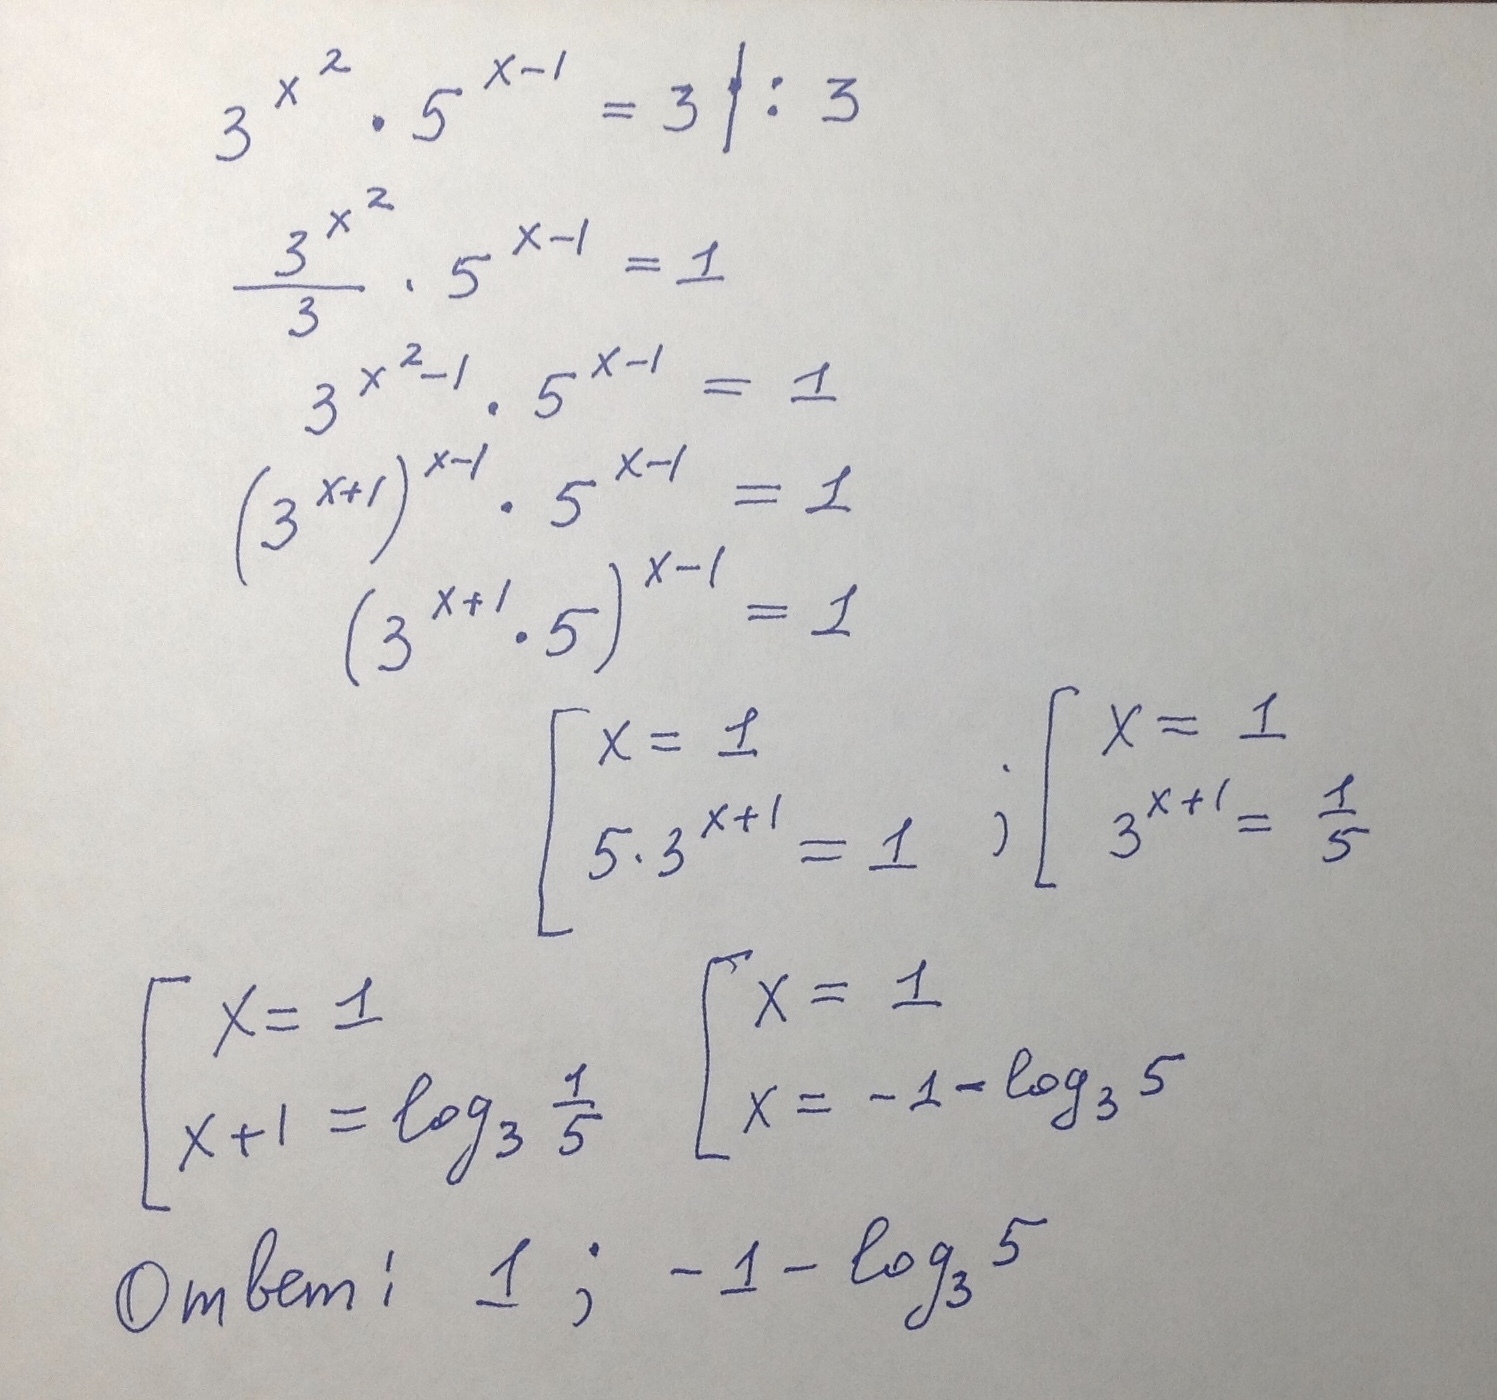 3^{x^2} · 5^{x-1} = 3 | : 3
\frac{3^{x^2}}{3} · 5^{x-1} = 1
3^{x^2-1} · 5^{x-1} = 1
(3^{x+1})^{x-1} · 5^{x-1} = 1
(3^{x+1} · 5)^{x-1} = 1
[ x = 1 ; [ x = 1
5 · 3^{x+1} = 1 3^{x+1} = \frac{1}{5}
[ x = 1 [ x = 1
x+1 = log_3 \frac{1}{5} x = -1 - log_3 5
Ответ: 1 ; -1 - log_3 5